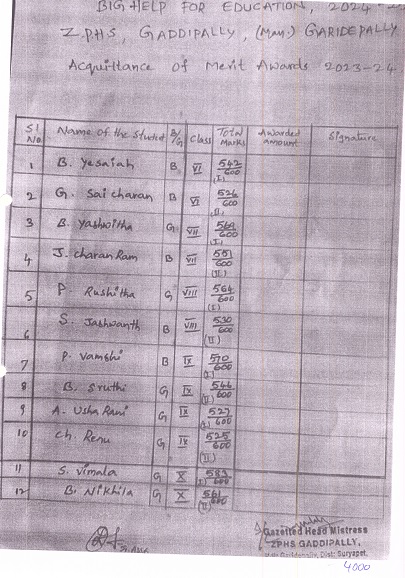 BIG HELP FOR EDUCATION, 2024
Z.P.H.S, GADDIPALLY, (Man.) GARIDEPALLY
Acquittance of Merit Awards 2023-24
Sl No. Name of the Student B/G Class Total Marks Awarded amount Signature
1 B. Yesaiah B VI 542/600 (I)
2 G. Sai charan B VI 526/600 (II)
3 B. Yashwitha G VII 560/600 (I)
4 J. charan Ram B VII 551/600 (II)
5 P. Rushitha G VIII 564/600 (I)
6 S. Jashwanth B VIII 530/600 (II)
7 P. Vamshi B IX 570/600 (I)
8 B. Sruthi G IX 544/600 (II)
9 A. Usha Rani G IX 527/600 (I)
10 Ch. Renu G IX 525/600 (II)
11 S. Vimala G X 583/600 (I)
12 B. Nikhila G X 561/600 (II)
Gazetted Head Mistress
ZPHS GADDIPALLY,
Dist: Suryapet.
4000